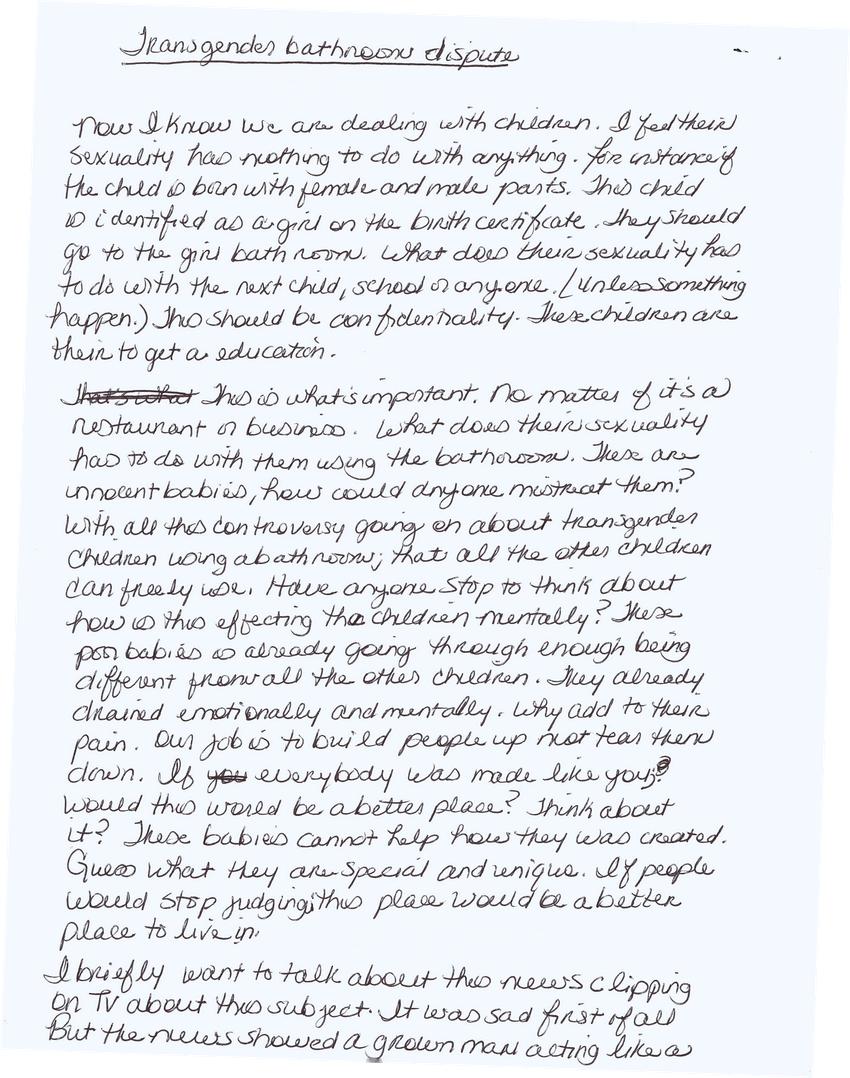 Transgender bathroom dispute
Now I know we are dealing with children. I feel their
sexuality has nothing to do with anything. For instance if
the child is born with female and male parts. This child
is identified as a girl on the birth certificate. They should
go to the girl bathroom. What does their sexuality has
to do with the next child, school or anyone. (Unless something
happen.) This should be confidentiality. These children are
their to get a education.
That's what This is what's important. No matter if it's a
restaurant or business. What does their sexuality
has to do with them using the bathoroom. These are
innocent babies, how could anyone mistreat them?
With all this controversy going on about transgender
Children using a bathroom; that all the other children
can freely use. Have anyone stop to think about
how is this effecting the children mentally? These
poor babies is already going through enough being
different from all the other children. They already
drained emotionally and mentally. Why add to their
pain. Our job is to build people up not tear them
down. If you everybody was made like you;?
would this world be a better place? Think about
it? These babies cannot help how they was created.
Guess what they are special and unique. If people
would stop judging; this place would be a better
place to live in.
I briefly want to talk about this news clipping
on TV about this subject. It was sad first of all
But the news showed a grown man acting like a